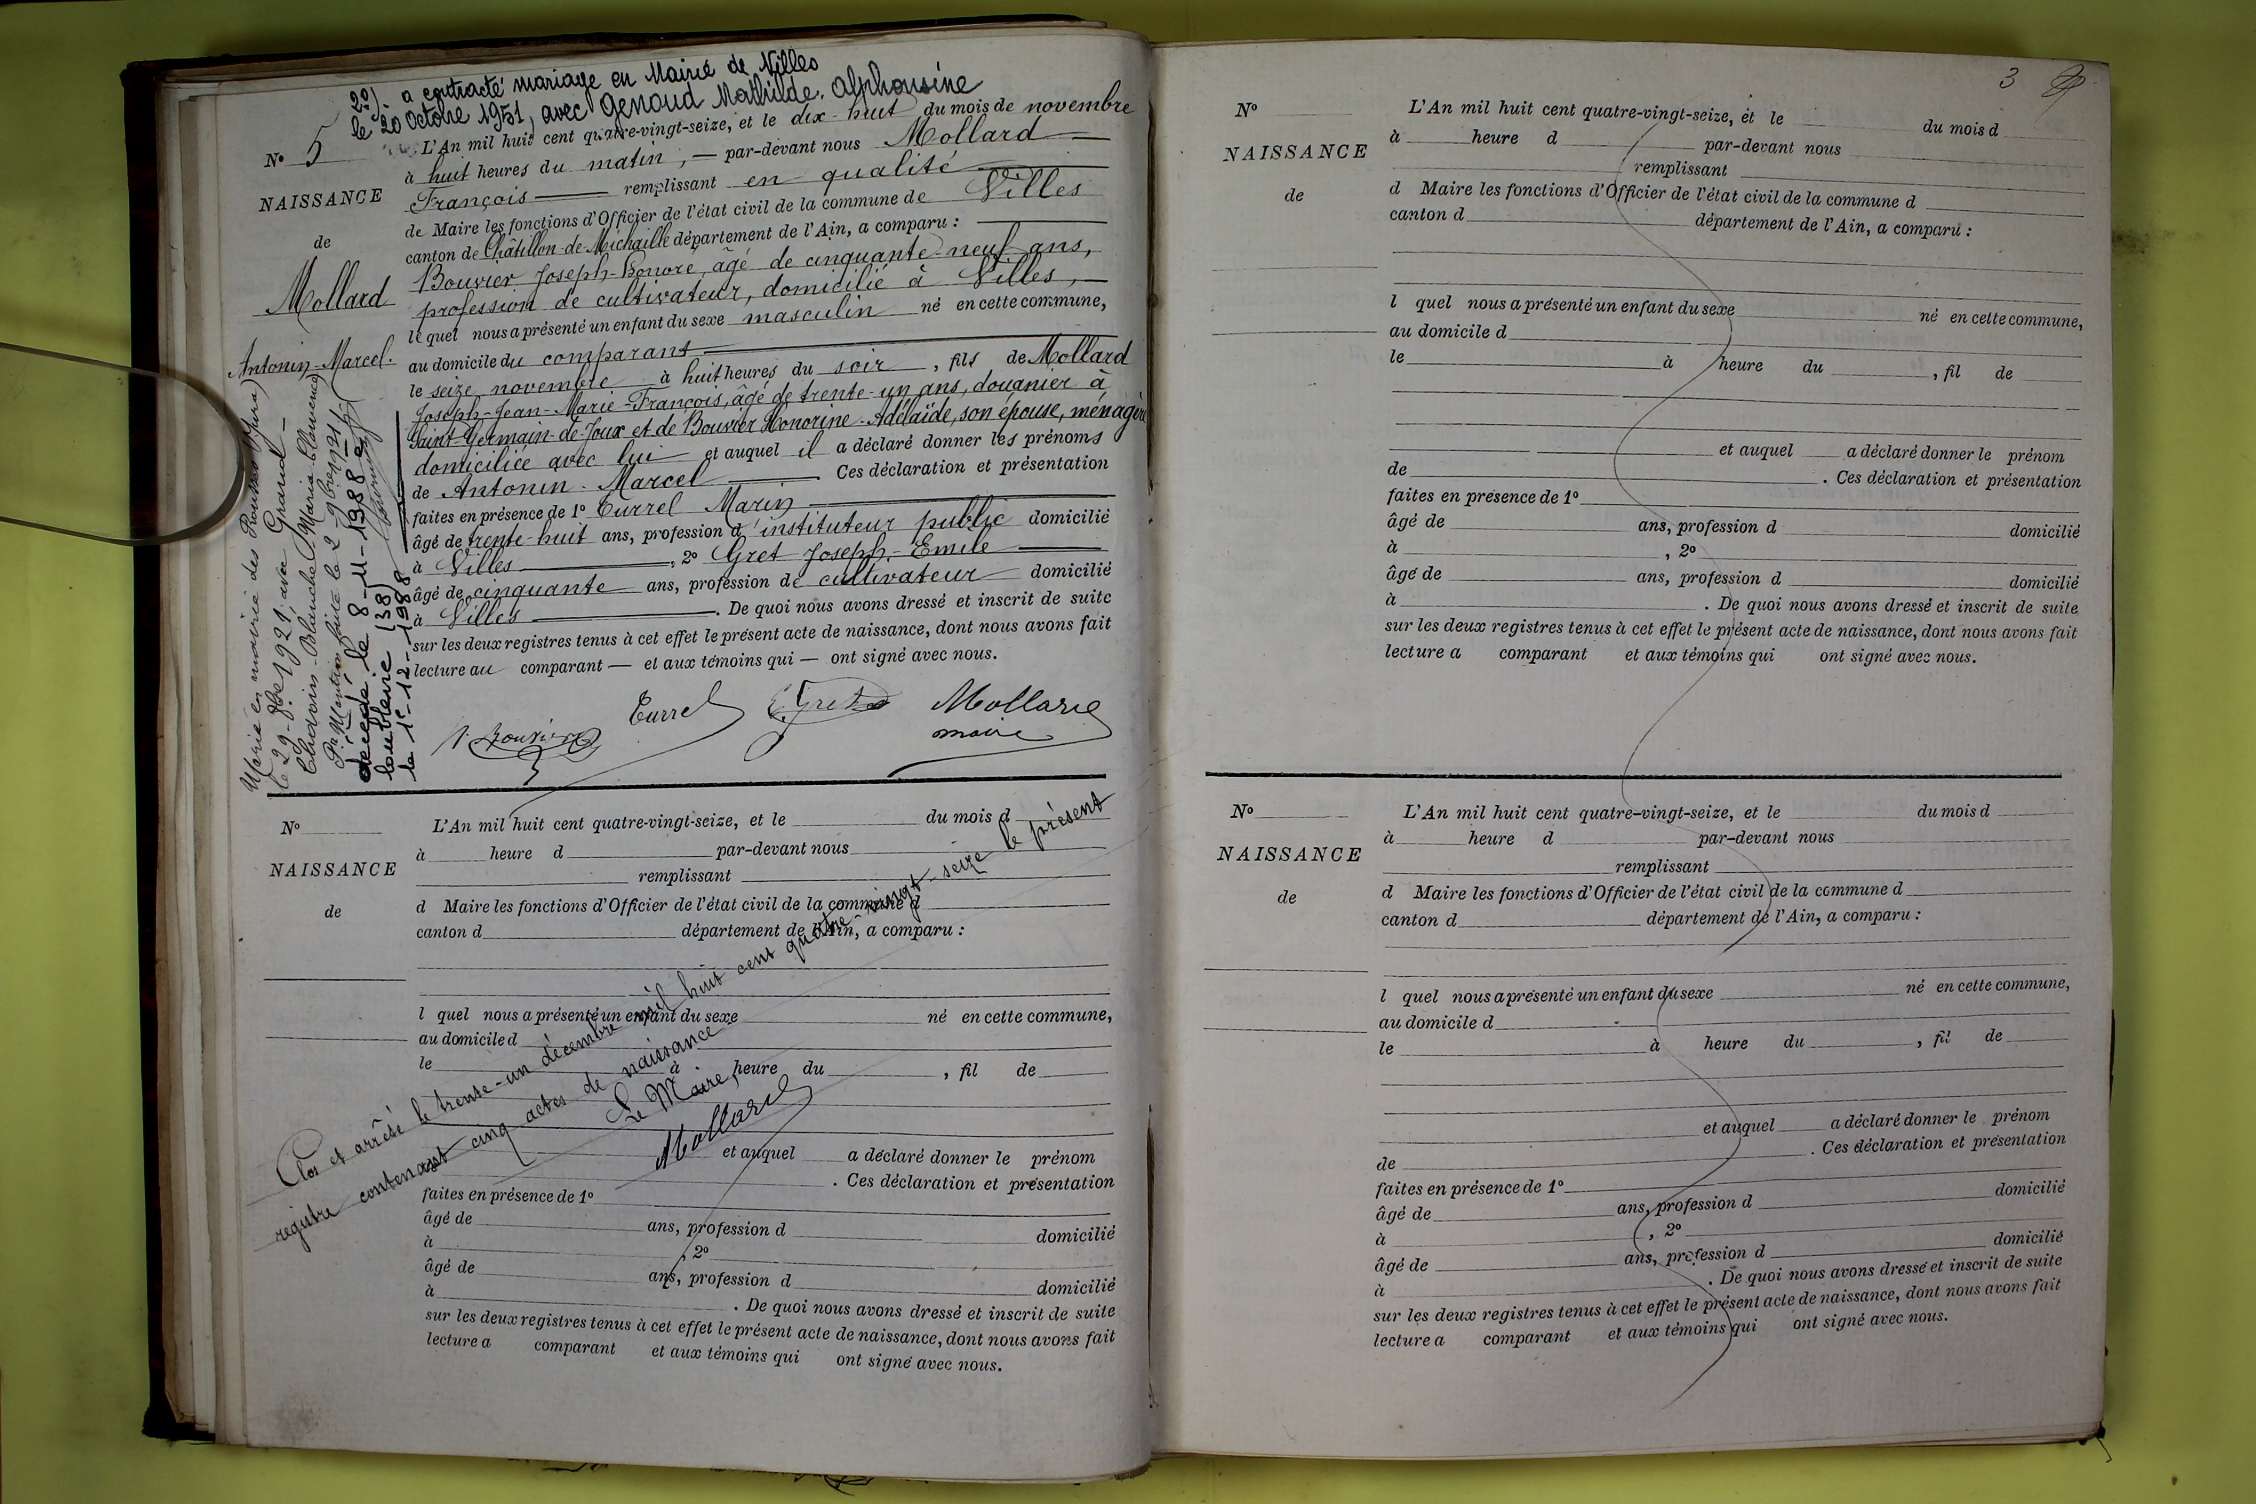 2º). a contracté mariage en Mairie de Villes
le 20 Octobre 1951, avec Genoud Mathilde. Alphonsine
Nº 5
NAISSANCE
de
Mollard
Antonin-Marcel.
L'An mil huit cent quatre-vingt-seize, et le dix-huit du mois de novembre
à huit heures du matin, — par-devant nous Mollard
François — remplissant en qualité
de Maire les fonctions d'Officier de l'état civil de la commune de Villes
canton de Châtillon-de-Michaille département de l'Ain, a comparu :
Bouvier Joseph-Honoré, âgé de cinquante-neuf ans,
profession de cultivateur, domicilié à Villes,
lequel nous a présenté un enfant du sexe masculin né en cette commune,
au domicile du comparant
le seize novembre à huit heures du soir, fils de Mollard
Joseph-Jean-Marie-François, âgé de trente-un ans, douanier à
Saint-Germain-de-Joux et de Bouvier Honorine-Adélaïde, son épouse, ménagère
domiciliée avec lui et auquel il a déclaré donner les prénoms
de Antonin-Marcel — Ces déclaration et présentation
faites en présence de 1º Turrel Marin
âgé de trente-huit ans, profession d'instituteur public domicilié
à Villes, 2º Gret Joseph-Emile
âgé de cinquante ans, profession de cultivateur domicilié
à Villes. De quoi nous avons dressé et inscrit de suite
sur les deux registres tenus à cet effet le présent acte de naissance, dont nous avons fait
lecture au comparant — et aux témoins qui — ont signé avec nous.
Bouvier Turrel Gret Mollard
maire
Marié en mairie des (Jura)
le 29-8bre 1921, avec Girard
Blanche Maria
décédé le 8-11-1988 a
le 1e-12-1988
Nº
NAISSANCE
de
L'An mil huit cent quatre-vingt-seize, et le du mois d
à heure d par-devant nous
remplissant
d Maire les fonctions d'Officier de l'état civil de la commune d
canton d département de l'Ain, a comparu :
l quel nous a présenté un enfant du sexe né en cette commune,
au domicile d
le à heure du , fil de
et auquel a déclaré donner le prénom
. Ces déclaration et présentation
faites en présence de 1º
âgé de ans, profession d domicilié
à , 2º
âgé de ans, profession d domicilié
à . De quoi nous avons dressé et inscrit de suite
sur les deux registres tenus à cet effet le présent acte de naissance, dont nous avons fait
lecture a comparant et aux témoins qui ont signé avec nous.
Clos et arrêté le trente-un décembre mil huit cent quatre-vingt-seize le présent
registre contenant cinq actes de naissance
Le Maire,
Mollard
3
Nº
NAISSANCE
de
L'An mil huit cent quatre-vingt-seize, et le du mois d
à heure d par-devant nous
remplissant
d Maire les fonctions d'Officier de l'état civil de la commune d
canton d département de l'Ain, a comparu :
l quel nous a présenté un enfant du sexe né en cette commune,
au domicile d
le à heure du , fil de
et auquel a déclaré donner le prénom
de . Ces déclaration et présentation
faites en présence de 1º
âgé de ans, profession d domicilié
à , 2º
âgé de ans, profession d domicilié
à . De quoi nous avons dressé et inscrit de suite
sur les deux registres tenus à cet effet le présent acte de naissance, dont nous avons fait
lecture a comparant et aux témoins qui ont signé avec nous.
Nº
NAISSANCE
de
L'An mil huit cent quatre-vingt-seize, et le du mois d
à heure d par-devant nous
remplissant
d Maire les fonctions d'Officier de l'état civil de la commune d
canton d département de l'Ain, a comparu :
l quel nous a présenté un enfant du sexe né en cette commune,
au domicile d
le à heure du , fil de
et auquel a déclaré donner le prénom
de . Ces déclaration et présentation
faites en présence de 1º
âgé de ans, profession d domicilié
à , 2º
âgé de ans, profession d domicilié
à . De quoi nous avons dressé et inscrit de suite
sur les deux registres tenus à cet effet le présent acte de naissance, dont nous avons fait
lecture a comparant et aux témoins qui ont signé avec nous.